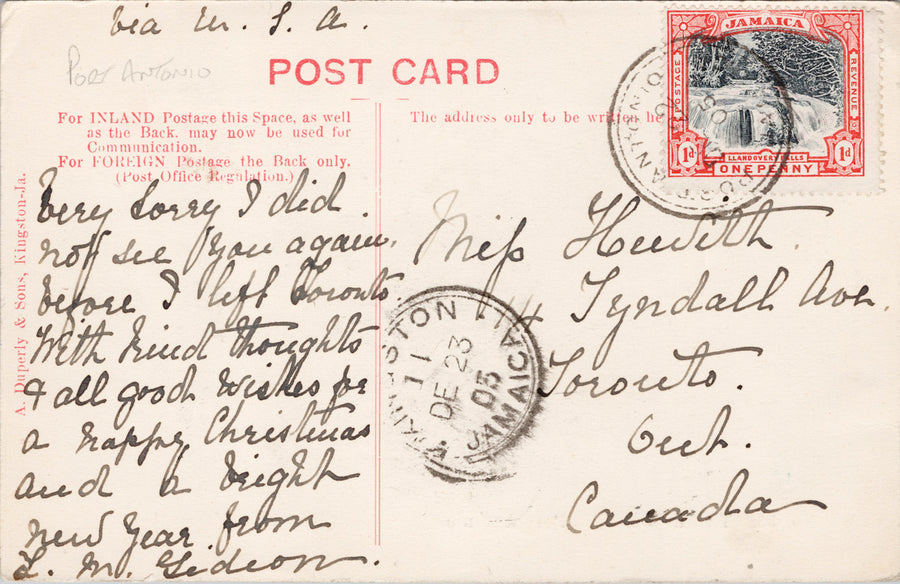 via U. S. A.
Port Antonio
POST CARD
For INLAND Postage this Space, as well
as the Back, may now be used for
Communication.
For FOREIGN Postage the Back only.
(Post Office Regulation.)
The address only to be written he
A. Duperly & Sons, Kingston-Ja.
Very Sorry I did
not see you again
before I left Toronto
With kind thoughts
& all good wishes for
a happy Christmas
and a bright
new year from
L. M. Gideon.
Miss Hewith.
14 Tyndall Ave.
Toronto.
Ont.
Canada
JAMAICA
POSTAGE
REVENUE
1d
LLANDOVERY FALLS
1d
ONE PENNY
PORT ANTONIO
KINGSTON
11
DE 23
05
JAMAICA